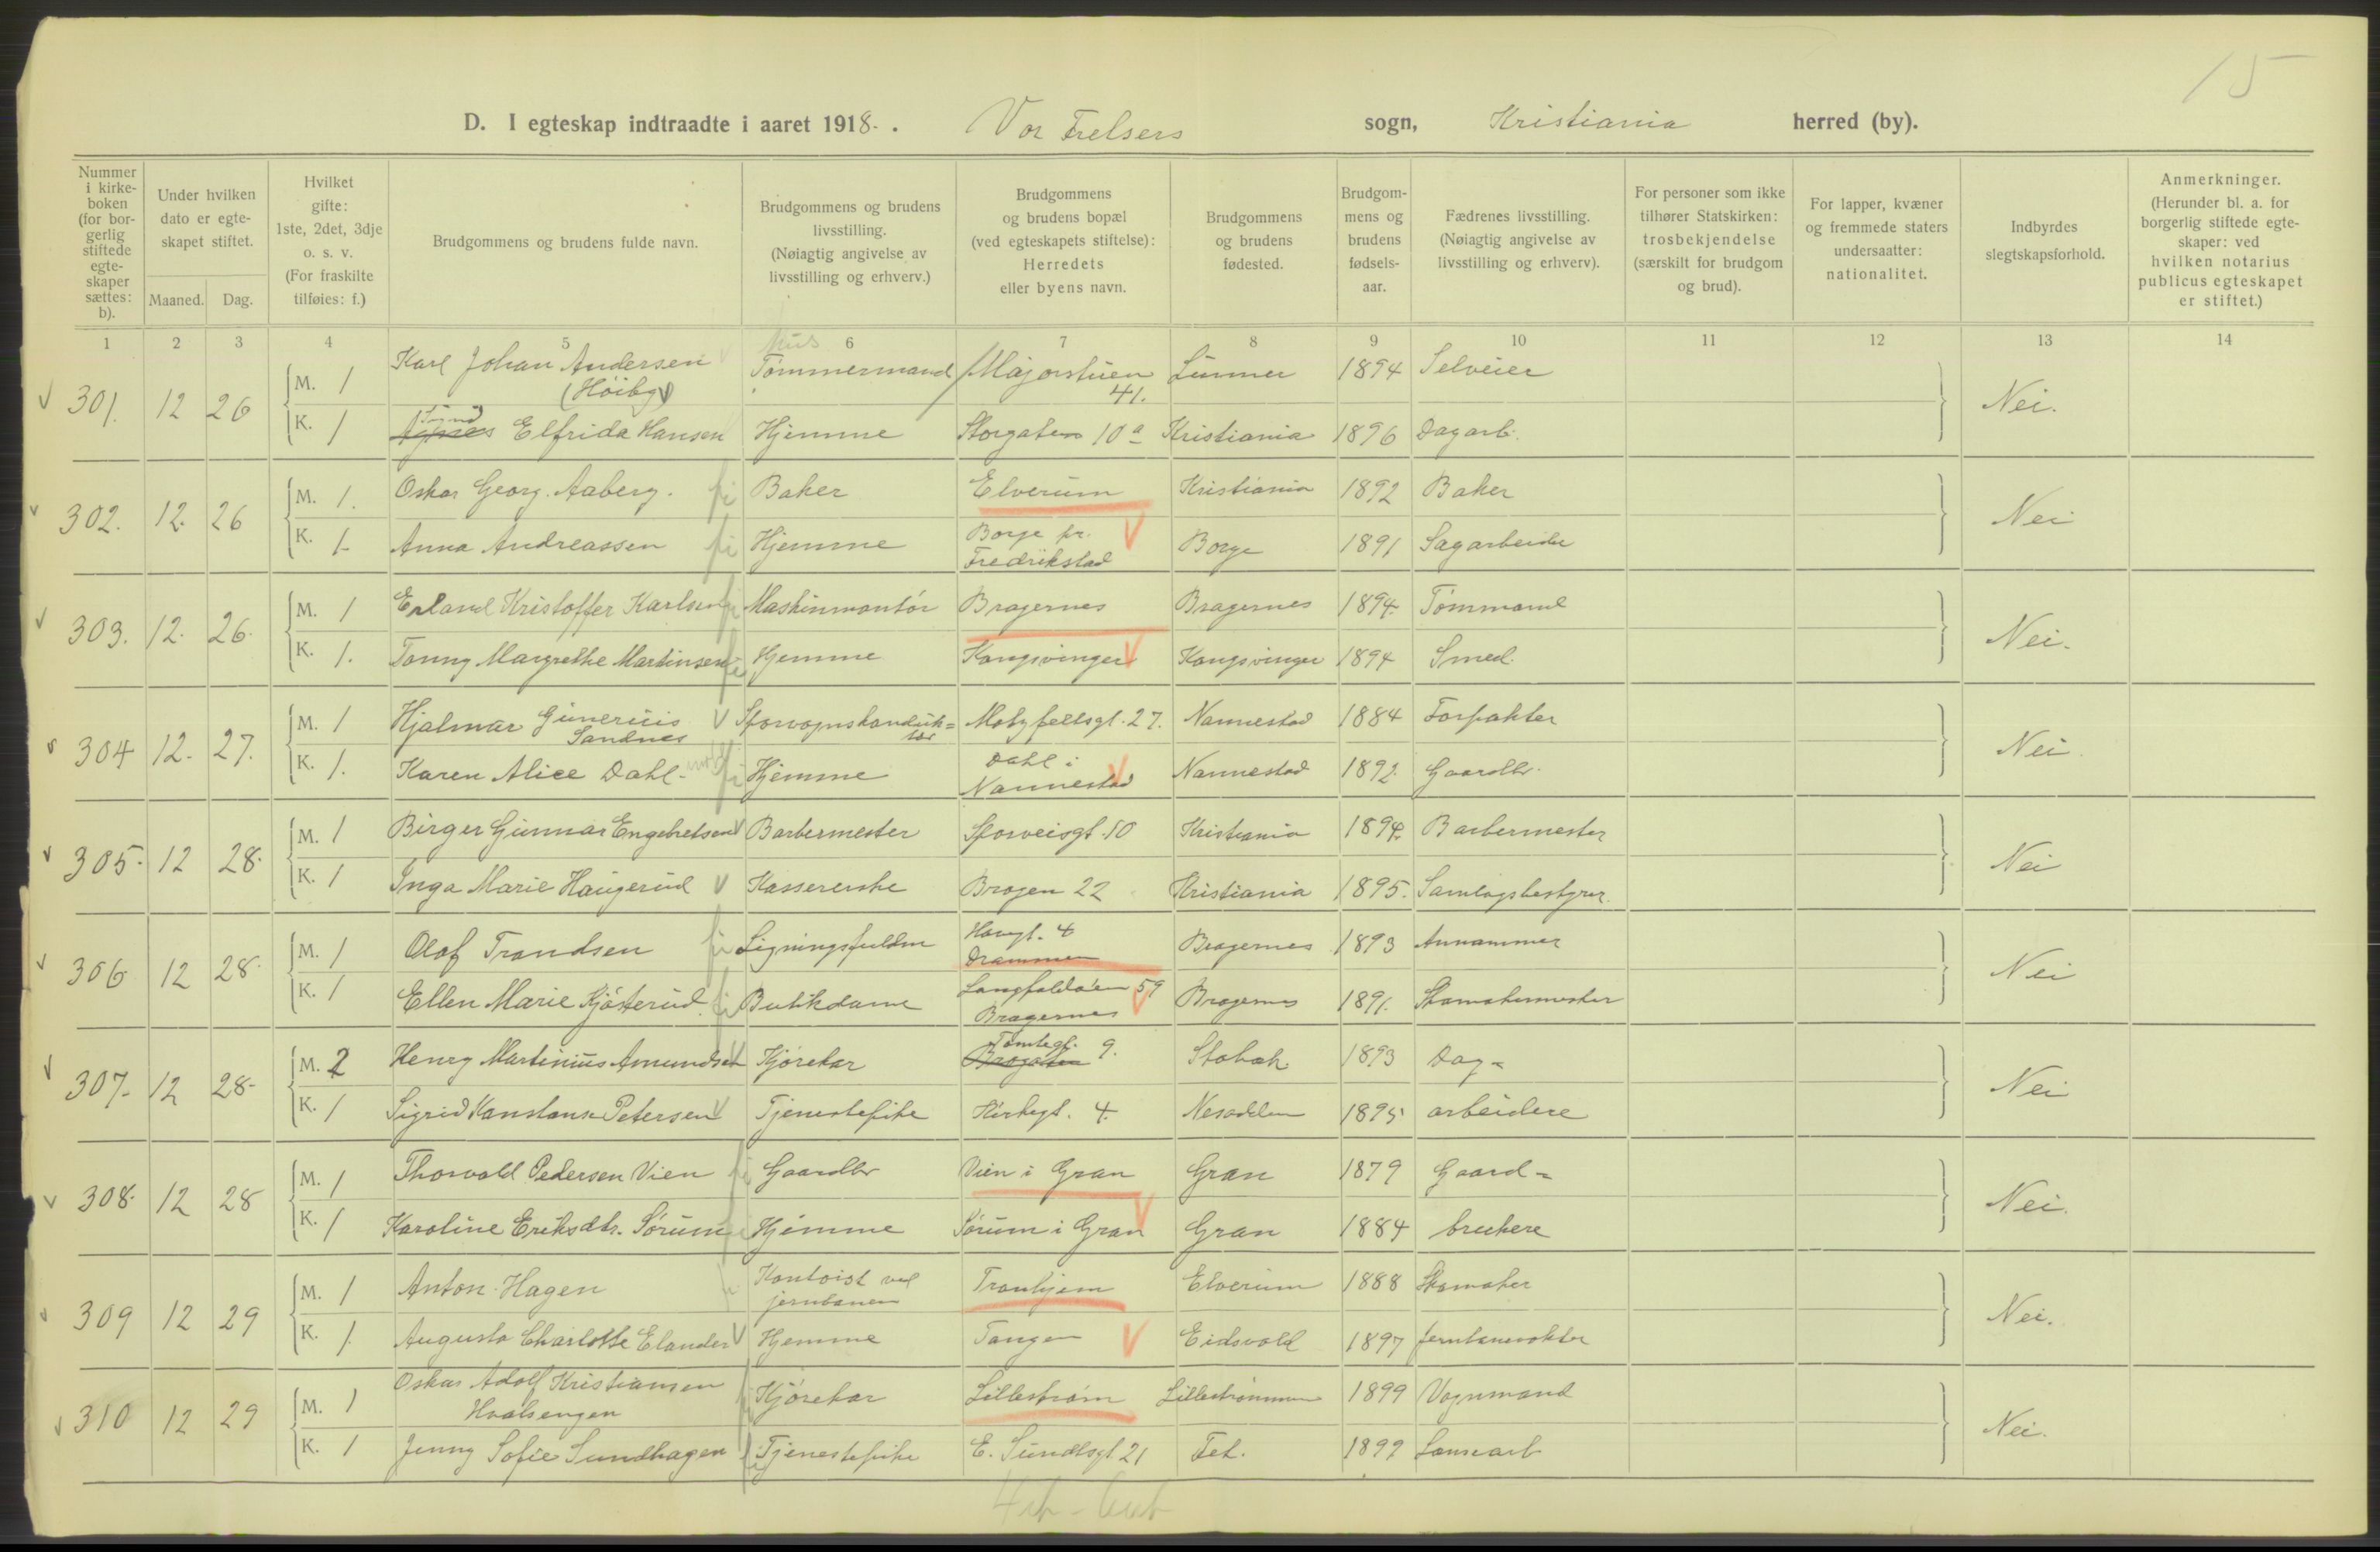 15
D. I egteskap indtraadte i aaret 1918. Vor Frelsers sogn, Kristiania herred (by).
Nummer i kirke-boken (for bor-gerlig stiftede egte-skaper sættes: b).
Under hvilken dato er egte-skapet stiftet.
Maaned. Dag.
Hvilket gifte: 1ste, 2det, 3dje o. s. v. (For fraskilte tilføies: f.)
Brudgommens og brudens fulde navn.
Brudgommens og brudens livsstilling. (Nøiagtig angivelse av livsstilling og erhverv.)
Brudgommens og brudens bopæl (ved egteskapets stiftelse): Herredets eller byens navn.
Brudgommens og brudens fødested.
Brudgom-mens og brudens fødsels-aar.
Fædrenes livsstilling. (Nøiagtig angivelse av livsstilling og erhverv).
For personer som ikke tilhører Statskirken: trosbekjendelse (særskilt for brudgom og brud).
For lapper, kvæner og fremmede staters undersaatter: nationalitet.
Indbyrdes slegtskapsforhold.
Anmerkninger. (Herunder bl. a. for borgerlig stiftede egte-skaper: ved hvilken notarius publicus egteskapet er stiftet.)
1 2 3 4 5 6 7 8 9 10 11 12 13 14
301. 12 26 M. 1 Karl Johan Andersen (Høiby) Tømmermand Majorstuen 41. Lunner 1894 Selveier Nei.
K. 1 Elfrida Hansen Hjemme Storgaten 10a Kristiania 1896 Dagarb.
302. 12. 26 M. 1. Oskar Georg. Aaberg. Baker Elverum Kristiania 1892 Baker Nei
K. 1 Anna Andreassen Hjemme Borge pr. Fredrikstad Borge 1891 Sagarbeider
303. 12. 26. M. 1 Erland Kristoffer Karlsen Maskinmontør Bragernes Bragernes 1894. Tømmand Nei.
K. 1. Tonny Margrethe Martinsen Hjemme Kongsvinger Kongsvinger 1894 Smed.
304 12. 27. M. 1 Hjalmar Gunerius Sandnes Sporvognskonduk=tør 27. Nannestad 1884 Forpakter Nei
K. 1. Karen Alice Dahl. Hjemme Dahl i Nannestad Nannestad 1892. Gaardbr.
305. 12 28. M. 1 Birger Gunnar Engebretsen Barbermester Sporveisgt. 10 Kristiania 1894. Barbermester Nei
K. 1 Inga Marie Haugerud Kassererske Brogen 22 Kristiania 1895. Samlagsbestyrer.
306 12 28. M. 1 Olaf Trondsen Ligningsfuldm Haugt. 4 Drammen Bragernes 1893 Annammer Nei
K. 1 Ellen Marie Kjøsterud Butikdame 59 Bragernes Bragernes 1891. Skomakermester
307. 12 28. M. 2 Henry Martinius Amundsen Kjørekar Tomtegt. 9. 1893 Dag=
K. 1 Sigrid Konstanse Petersen Tjenestepike Kirkegt. 4. Nesodden 1895 arbeidere Nei
308. 12 28 M. 1 Thorvald Pedersen Vien Gaardbr Vien i Gran Gran 1879 Gaard= Nei.
K. 1 Karoline Eriksdtr. Sørum Hjemme Sørum i Gran Gran 1884 brukere
309 12 29 M. 1 Anton Hagen Kontorist ved jernbanen Tronhjem Elverum 1888 Skomaker Nei.
K. 1. Augusta Charlotte Elander Hjemme Tangen Eidsvold 1897 Jernbanevokter
310 12 29 M. 1 Oskar Adolf Kristiansen Hvalsengen Kjørekar Lillestrøm Lillestrømmen 1899 Vognmand Nei.
K. 1 Jenny Sofie Sundhagen Tjenestepike E. Sundtsgt 21 Fet. 1899 Løusearb